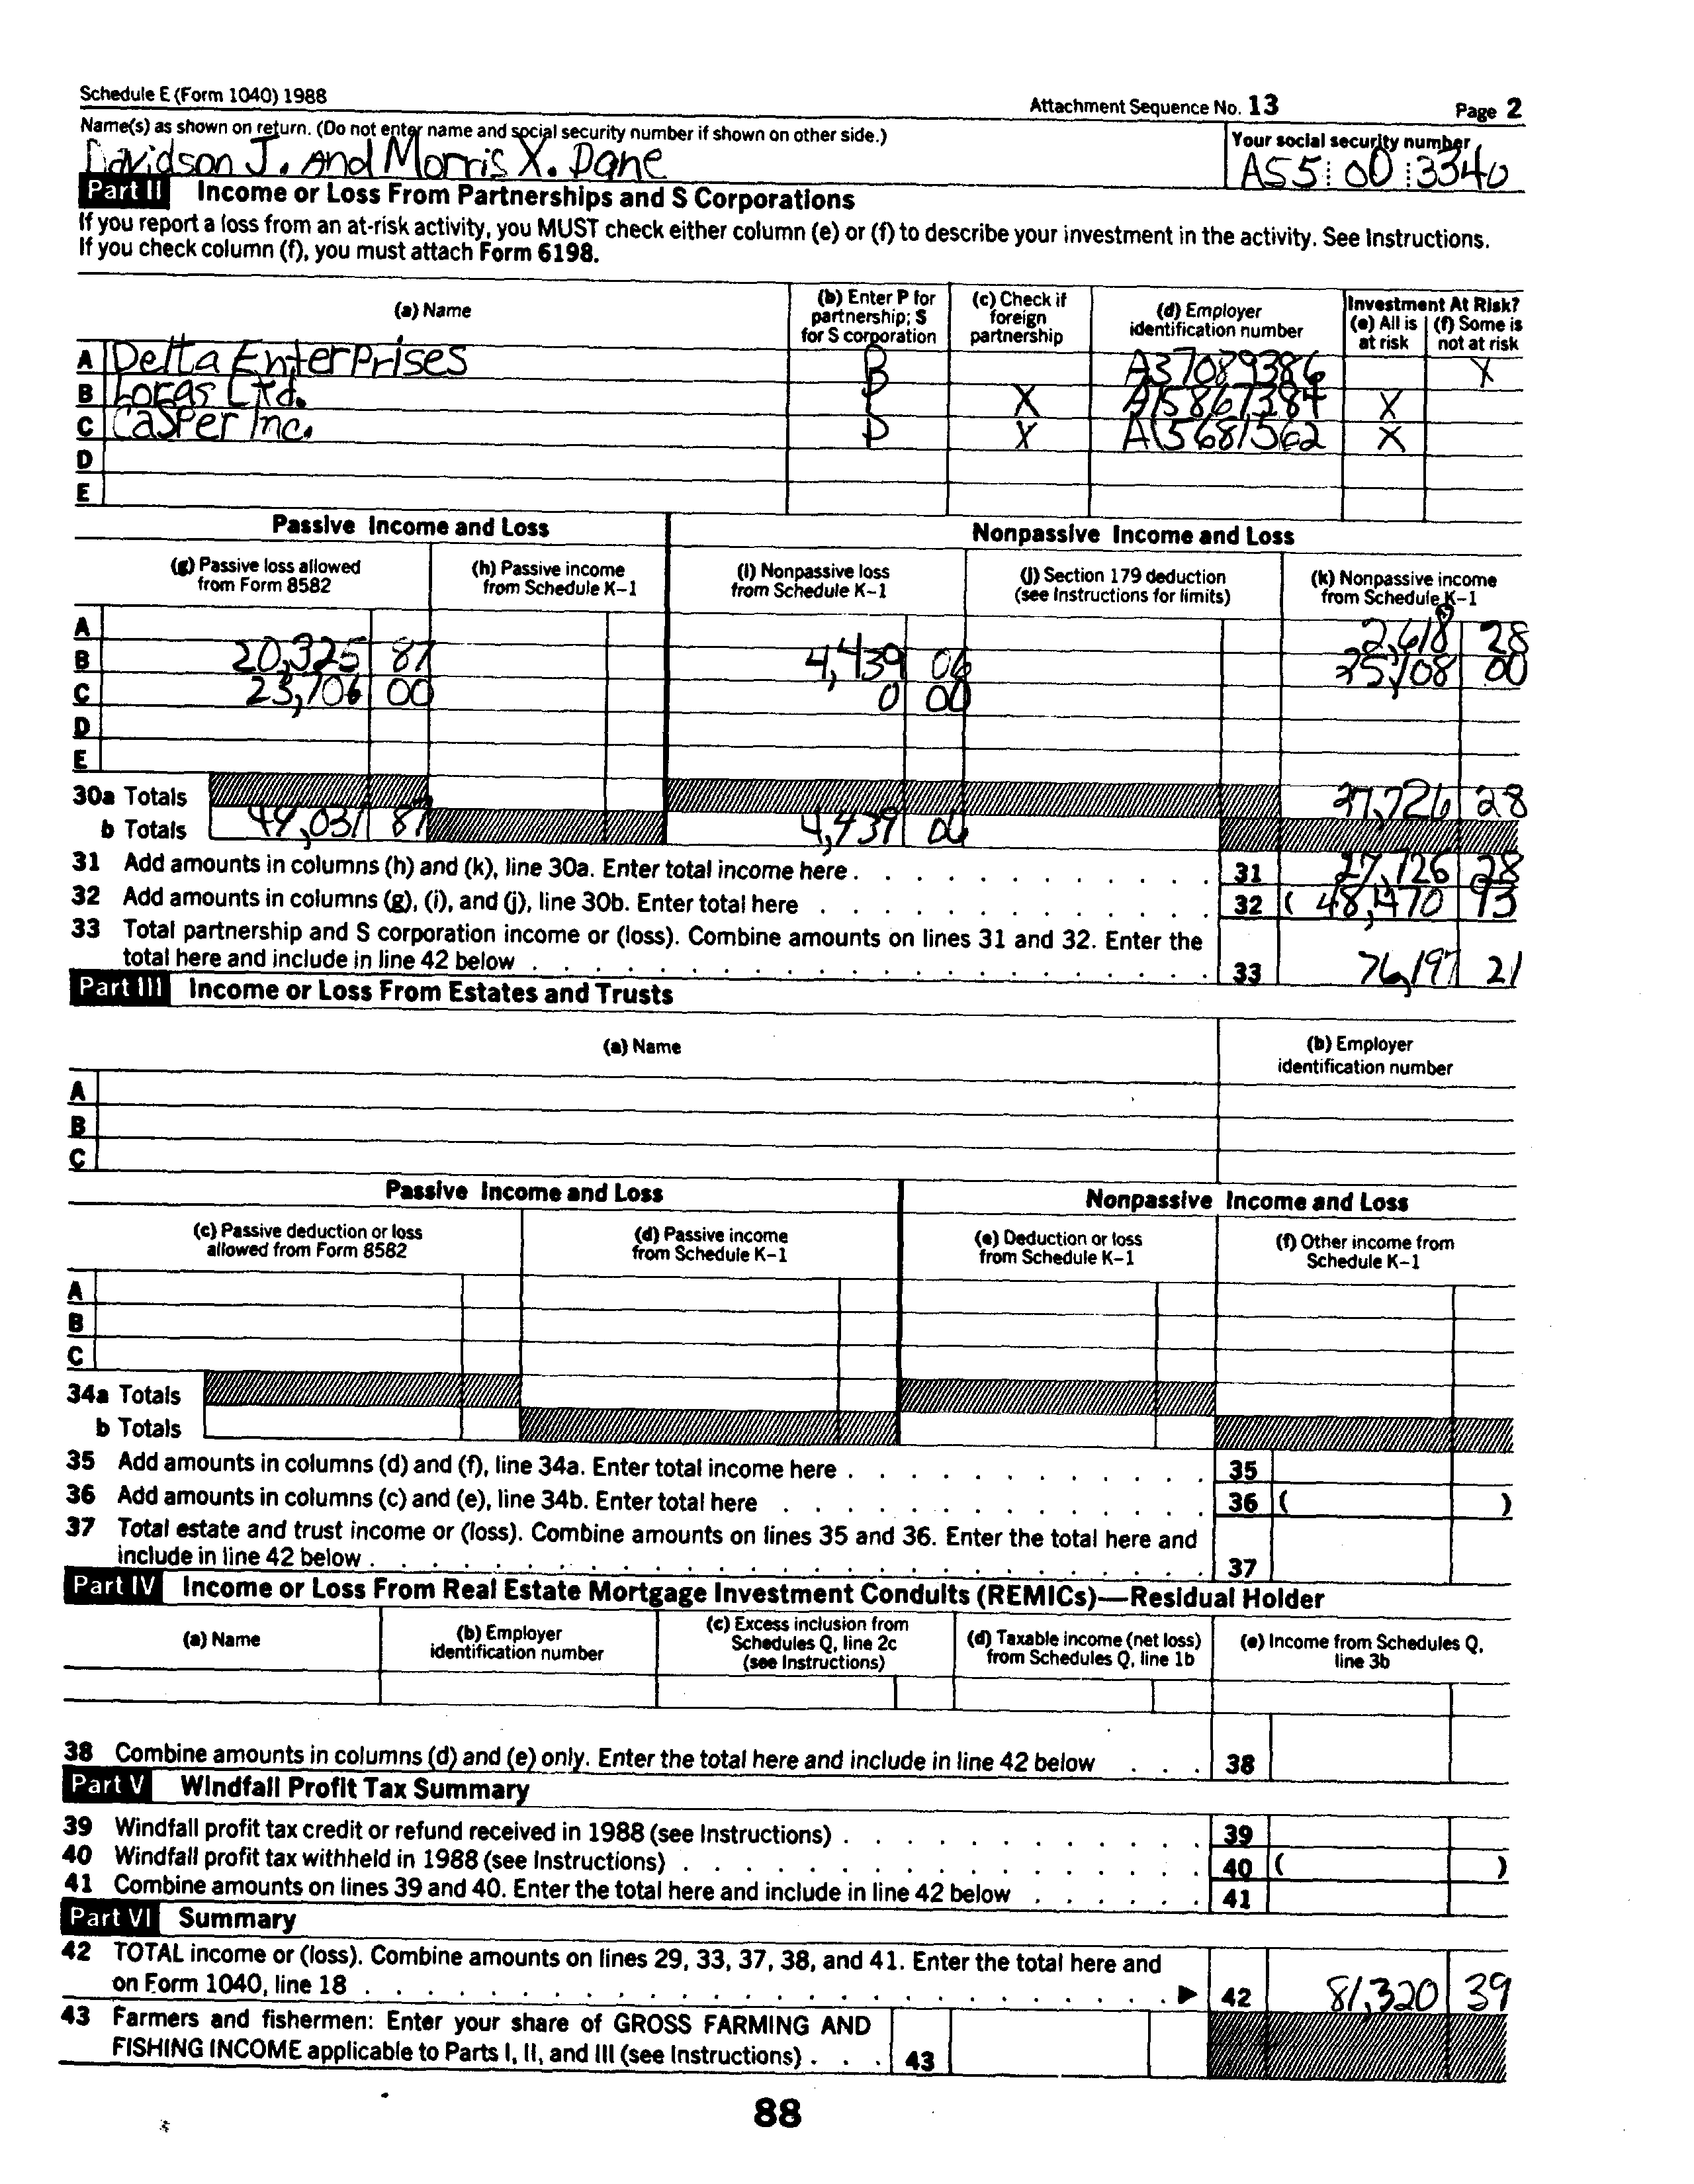 Schedule E (Form 1040) 1988 Attachment Sequence No. 13 Page 2
Name(s) as shown on return. (Do not enter name and social security number if shown on other side.) Your social security number
Davidson J. And Morris X. Dane AS5 00 3340
Part II Income or Loss From Partnerships and S Corporations
If you report a loss from an at-risk activity, you MUST check either column (e) or (f) to describe your investment in the activity. See Instructions.
If you check column (f), you must attach Form 6198.
(a) Name (b) Enter P for partnership; S for S corporation (c) Check if foreign partnership (d) Employer identification number Investment At Risk? (e) All is at risk (f) Some is not at risk
A Delta Enterprises P A37089386 X
B Loras Ltd. P X A15867384 X
C Casper Inc. P X A15681562 X
D
E
Passive Income and Loss Nonpassive Income and Loss
(g) Passive loss allowed from Form 8582 (h) Passive income from Schedule K-1 (i) Nonpassive loss from Schedule K-1 (j) Section 179 deduction (see Instructions for limits) (k) Nonpassive income from Schedule K-1
A 2,618 28
B 20,325 87 4,439 06 25,108 00
C 23,706 00 0 00
D
E
30a Totals 27,726 28
b Totals 44,031 87 4,439 06
31 Add amounts in columns (h) and (k), line 30a. Enter total income here . 31 27,726 28
32 Add amounts in columns (g), (i), and (j), line 30b. Enter total here 32 ( 48,470 93
33 Total partnership and S corporation income or (loss). Combine amounts on lines 31 and 32. Enter the
total here and include in line 42 below 33 76,197 21
Part III Income or Loss From Estates and Trusts
(a) Name (b) Employer identification number
A
B
C
Passive Income and Loss Nonpassive Income and Loss
(c) Passive deduction or loss allowed from Form 8582 (d) Passive income from Schedule K-1 (e) Deduction or loss from Schedule K-1 (f) Other income from Schedule K-1
A
B
C
34a Totals
b Totals
35 Add amounts in columns (d) and (f), line 34a. Enter total income here . 35
36 Add amounts in columns (c) and (e), line 34b. Enter total here 36 ( )
37 Total estate and trust income or (loss). Combine amounts on lines 35 and 36. Enter the total here and
include in line 42 below . 37
Part IV Income or Loss From Real Estate Mortgage Investment Conduits (REMICs)—Residual Holder
(a) Name (b) Employer identification number (c) Excess inclusion from Schedules Q, line 2c (see Instructions) (d) Taxable income (net loss) from Schedules Q, line 1b (e) Income from Schedules Q, line 3b
38 Combine amounts in columns (d) and (e) only. Enter the total here and include in line 42 below 38
Part V Windfall Profit Tax Summary
39 Windfall profit tax credit or refund received in 1988 (see Instructions) . 39
40 Windfall profit tax withheld in 1988 (see Instructions) . 40 ( )
41 Combine amounts on lines 39 and 40. Enter the total here and include in line 42 below 41
Part VI Summary
42 TOTAL income or (loss). Combine amounts on lines 29, 33, 37, 38, and 41. Enter the total here and
on Form 1040, line 18 . 42 81,320 39
43 Farmers and fishermen: Enter your share of GROSS FARMING AND
FISHING INCOME applicable to Parts I, II, and III (see Instructions) . 43
88